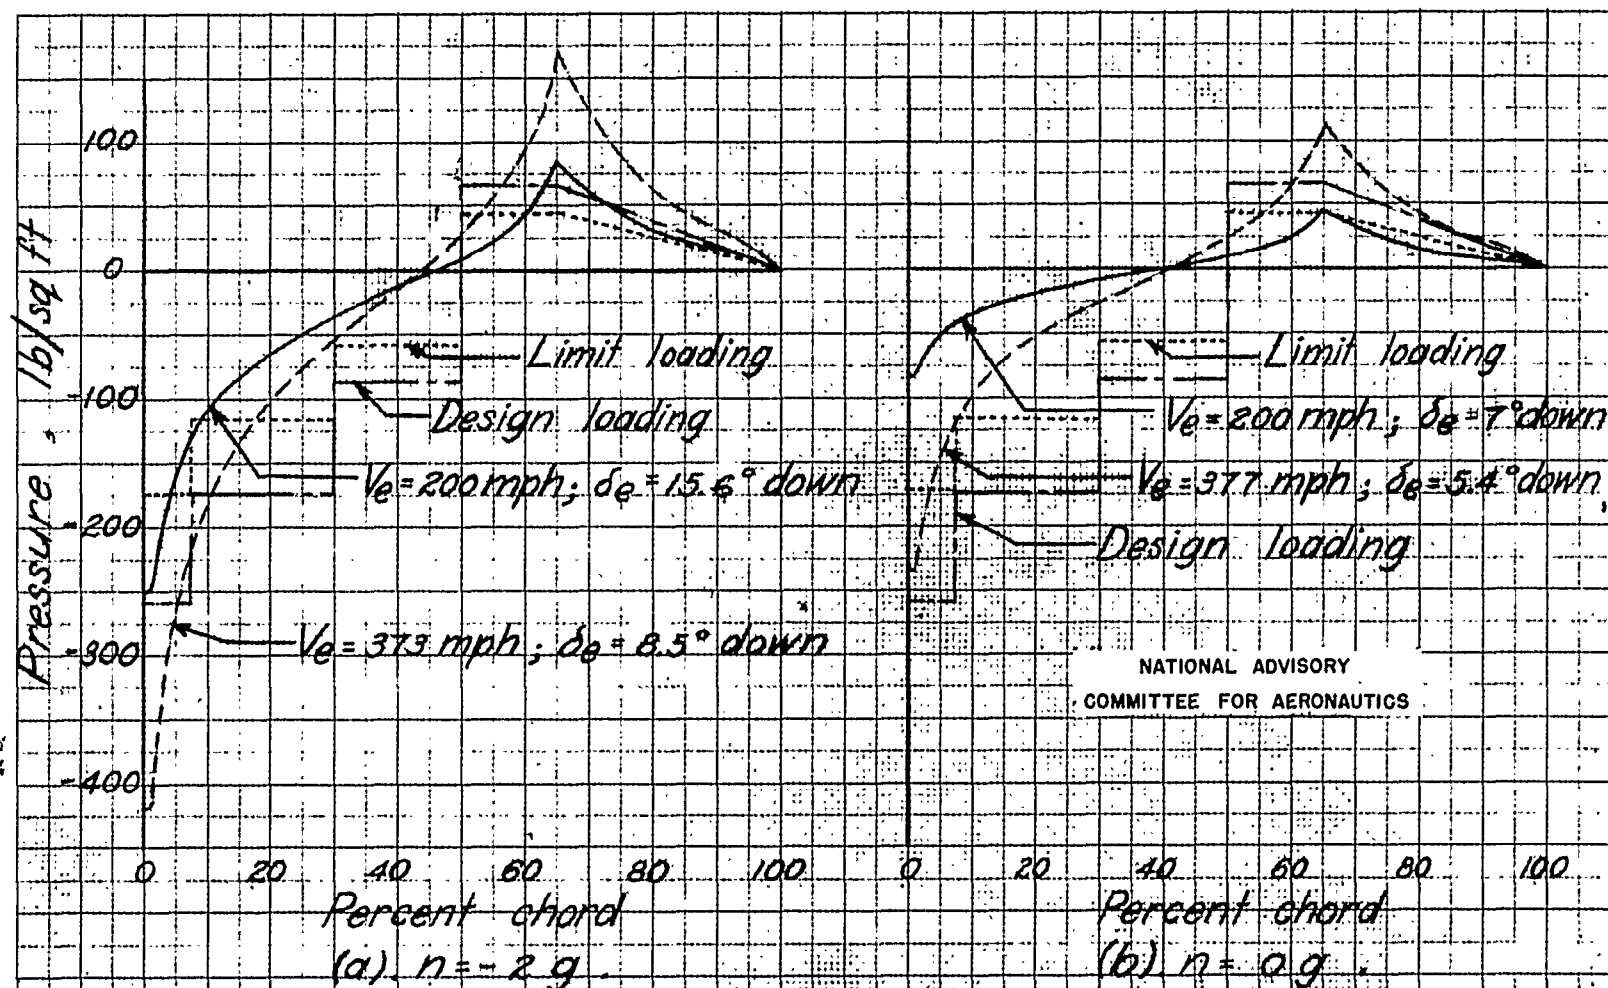 Pressure, lb/sq ft
100
0
-100
-200
-300
-400
0 20 40 60 80 100
Limit loading
Design loading
Ve=200 mph; δe=15.6° down
Ve=373 mph; δe=8.5° down
Percent chord
(a) n=-2 g.
Limit loading
Ve=200 mph; δe=7° down
Ve=377 mph; δe=5.4° down
Design loading
NATIONAL ADVISORY
COMMITTEE FOR AERONAUTICS
0 20 40 60 80 100
Percent chord
(b) n=0 g.